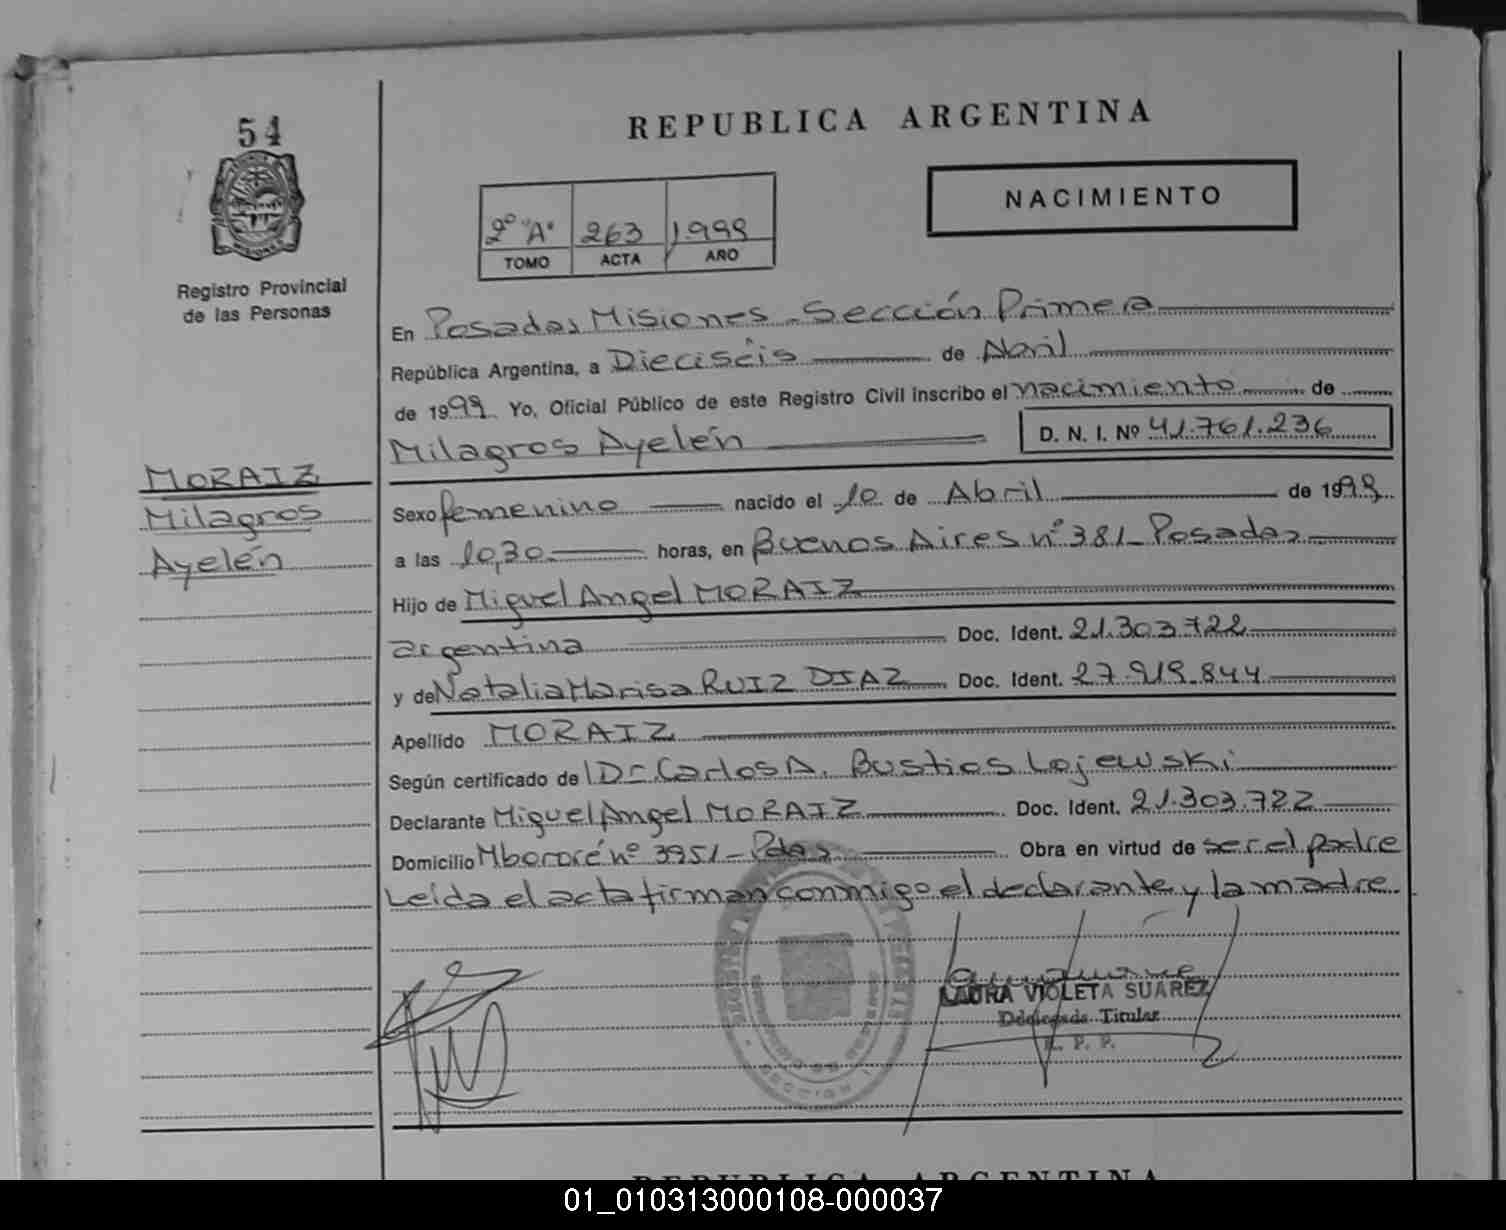 54
REPUBLICA ARGENTINA
NACIMIENTO
2º "A" 263 1.999
TOMO ACTA AÑO
Registro Provincial
de las Personas
En Posadas Misiones - Sección Primera
República Argentina, a Dieciséis de Abril
de 1999 Yo, Oficial Público de este Registro Civil inscribo el nacimiento de
Milagros Ayelén D. N. I. Nº 41.761.236
MORAIZ
Milagros
Ayelén
Sexo femenino nacido el 10 de Abril de 1999
a las 10,30 horas, en Buenos Aires nº 381 - Posadas
Hijo de Miguel Angel MORAIZ
argentina Doc. Ident. 21.303.722
y de Natalia Marisa RUIZ DIAZ Doc. Ident. 27.919.844
Apellido MORAIZ
Según certificado de Dr. Carlos A. Bustios Lojewski
Declarante Miguel Angel MORAIZ Doc. Ident. 21.303.722
Domicilio Mbororé nº 3951 - Pdas Obra en virtud de ser el padre
Leída el acta firman conmigo el declarante y la madre
LAURA VIOLETA SUAREZ
Ddelegada Titular
R. P. P.
SECCION
REPUBLICA ARGENTINA
01_010313000108-000037